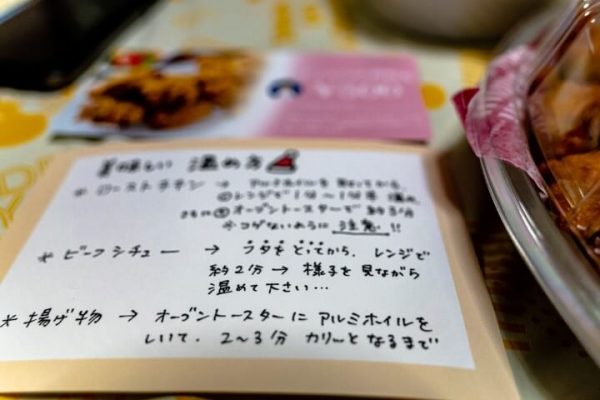 美味しい 温め方
* ローストチキン → アルミホイルを 取ってから、
①レンジで 1分〜1分半 温め
さらに②オーブントースターで 約3分
※コゲないように 注意!!
* ビーフシチュー → フタをとってから、レンジで
約2分 → 様子を見ながら
温めて下さい…
* 揚げ物 → オーブントースターに アルミホイルを
しいて、2〜3分 カリッとなるまで